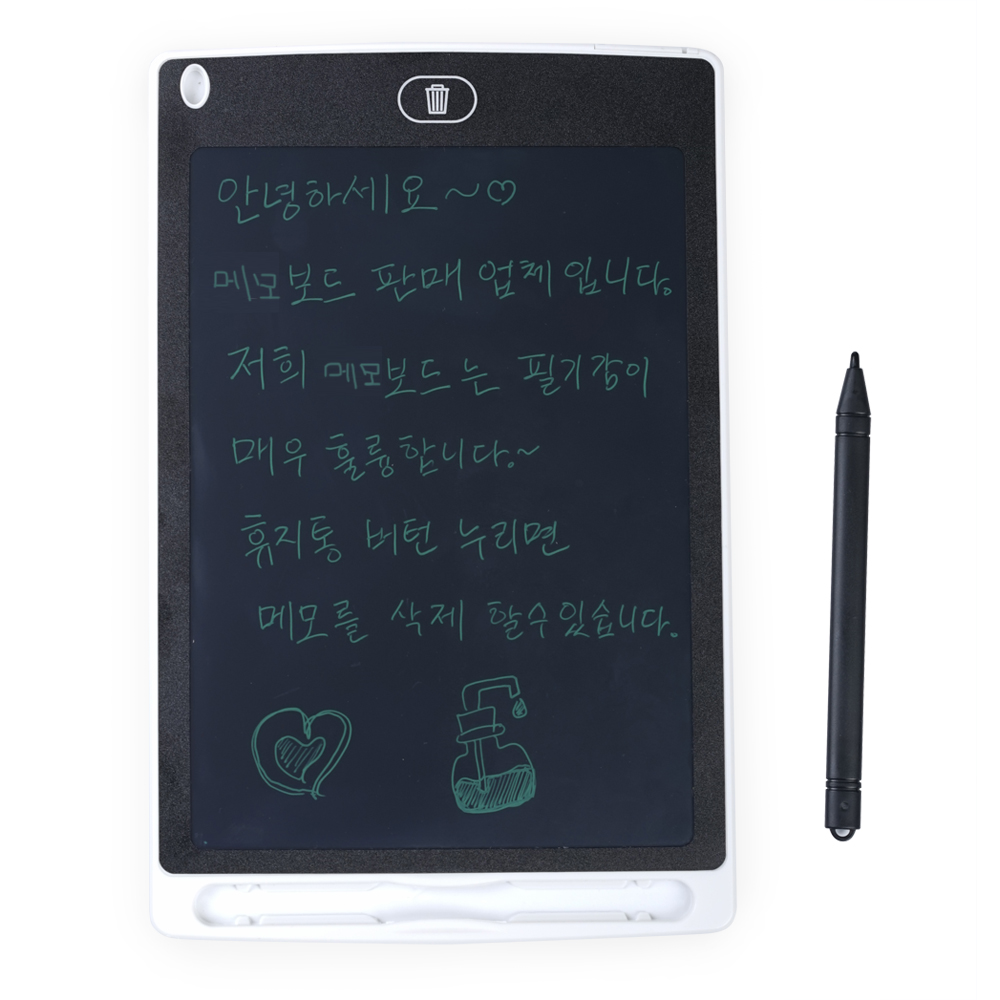 안녕하세요~♡
메모보드 판매 업체입니다.
저희 메모보드는 필기감이
매우 훌륭합니다.~
휴지통 버턴 누리면
메모를 삭제 할수있습니다.